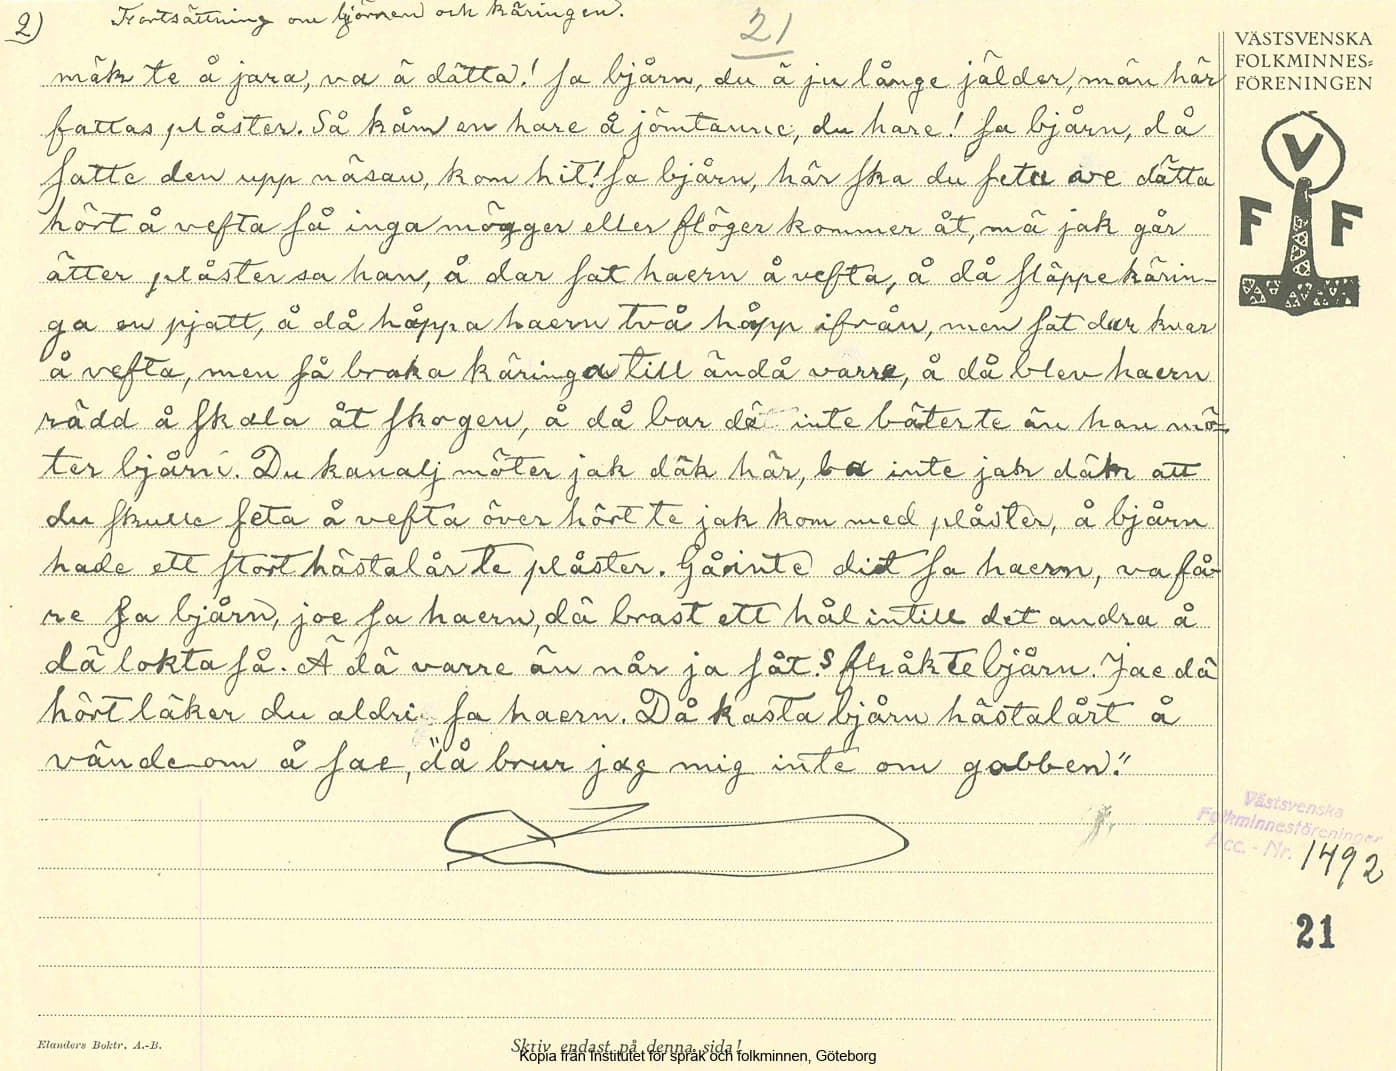 2) Fortsättning om björnen och käringen.
21
mäk te å jara, va ä dätta! sa bjårn, du ä ju långe jälder, män här
fattas plåster. Så kåm en hare å jömtanne, du hare! sa bjårn, då
satte den upp näsan, kom hit! sa bjårn, här ska du seta åve dätta
hört å vefta så inga mögger eller flöger kommer åt, mä jak går
ätter plåster sa han, å dar sat haern å vefta, å då släppe kärin-
ga en pjatt, å då håppa haern två håpp ifrån, men sat dar kvar
å vefta, men så braka käringa till ändå varre, å då blev haern
rädd å skala åt skogen, å då bar dä inte bäter te än han mö-
ter bjårn. Du kanalj möter jak däk här, ba inte jak däk att
du skulle seta å vefta över hört te jak kom med plåster, å bjårn
hade ett stort hästalår te plåster. Gå inte dit sa haern, va få-
re sa bjårn, joe sa haern, dä brast ett hål intill det andra å
dä lokta så. Ä dä varre än når ja såt? skråkte bjårn. Jae dä
hört läker du aldri sa haern. Då kasta bjårn hästalårt å
vände om å sae, "då brur jag mig inte om gobben."
VÄSTSVENSKA
FOLKMINNES=
FÖRENINGEN
V
F F
Västsvenska
Folkminnesföreningen
Acc. - Nr. 1492
21
Elanders Boktr. A.-B.
Skriv endast på denna sida!
Kopia från Institutet för språk och folkminnen, Göteborg